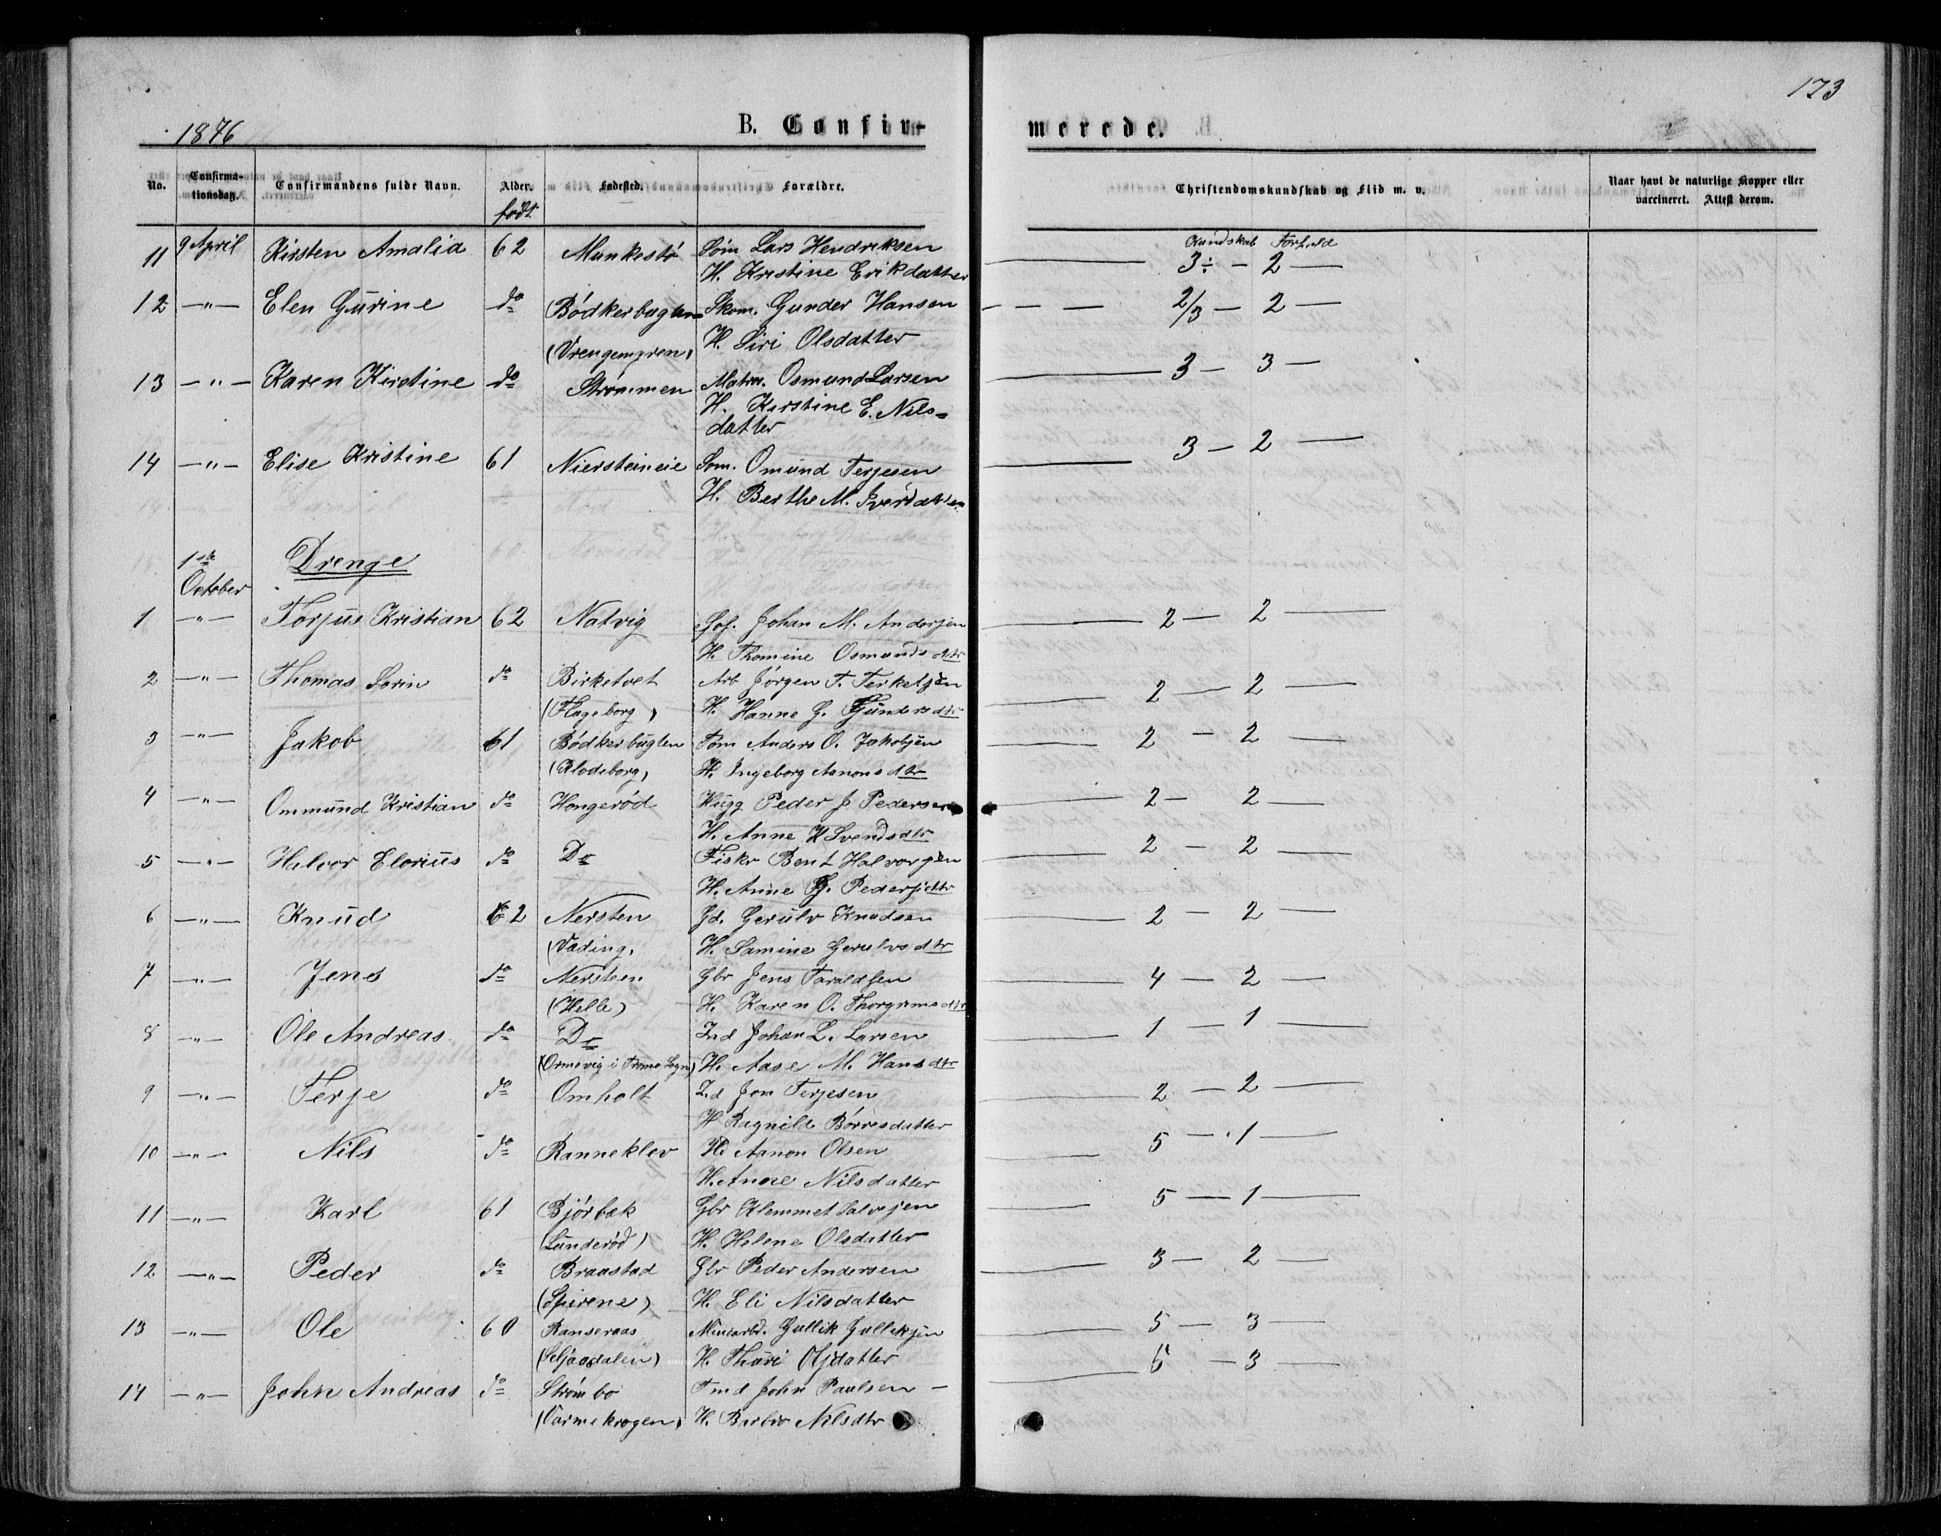 173
1876 B. Confirmerede.
No. Confirmationsdag. Confirmandens fulde Navn. Alder. født Fødested. Forældre. Christendomskundskab og Flid m. v. Naar havt de naturlige Kopper eller vaccineret. Attest derom.
Kundskab Forhold
11 9 April Kirsten Amalia 62 Munkestø Søm Lars Hendriksen 3÷ — 2 —
H. Kristine Erikdatter
12 —"— Elen Gurine do Bødkerbugten Skom. Gunder Hansen 2/3 — 2 —
(Vrengempren) H. Siri Olsdatter
13 —"— Karen Kirstine do Strømmen Matr. Osmund Larsen 3 — 3 —
H. Kirstine E. Nils=
datter
14 —"— Elise Kristine 61 Niersteineie Søm. Omund Terjesen 3 — 2 —
H. Berthe M. Iversdatter
1ste October Drenge
1 —"— Torjus Kristian 62 Natvig Gof. Johan M. Andersen 2 — 2 —
H. Thomine Osmundsdtr
2 —"— Thomas Sørin do Birketvet Arb Jørgen T. Terkelsen 2 — 2 —
(Flageborg) H. Hanne G. Gundersdtr
3 —"— Jakob 61 Bødkerbugten Tøm Anders O. Jakobsen 2 — 2 —
(Klodeborg) H. Ingeborg Aanonsdtr
4 —"— Ommund Kristian do Hengerød Hugg Peder J Pedersen 2 — 2
H. Anne K Svendsdtr
5 —"— Halvor Elorius do Do Fiskr Bent Halvorsen 2 — 2
H. Anne G. Pedersdtr
6 —"— Knud 62 Nersten Gd. Gerulv Knudsen 2 — 2 —
(Vading) H. Samine Gerulvsdtr
7 —"— Jens do Nersten Gbr Jens Taraldsen 4 — 2 —
(Helle) H. Karen O. Thorgrimsdtr
8 —"— Ole Andreas do Do Ind Johan L. Larsen 1 — 1 —
(Ormevig i Tromø Sogn) H. Aase M. Hansdtr
9 —"— Terje do Omholt Ind Jon Terjesen 2 — 2 —
H Ragnild Børresdatter
10 —"— Nils do Ranneklev Hd Aanon Olsen 5 — 1 —
H. Anne Nilsdatter
11 —"— Karl 61 Bjørbæk Gbr Klemmet Salvesen 5 — 1 —
(Lunderød) H. Helene Olsdatter
12 —"— Peder do Braastad Gbr Peder Andersen 3 — 2 —
(Spirene) H. Eli Nilsdatter
13 —"— Ole 60 Ranseraas Minearbd. Gullik Gulliksen 5 — 3 —
(Seljaasdalen) H. Thuri Olsdatter
14 —"— John Andreas do Strømbo Tmd John Paulsen — 5 — 3 —
(Varmekrogen) H. Barbro Nilsdtr